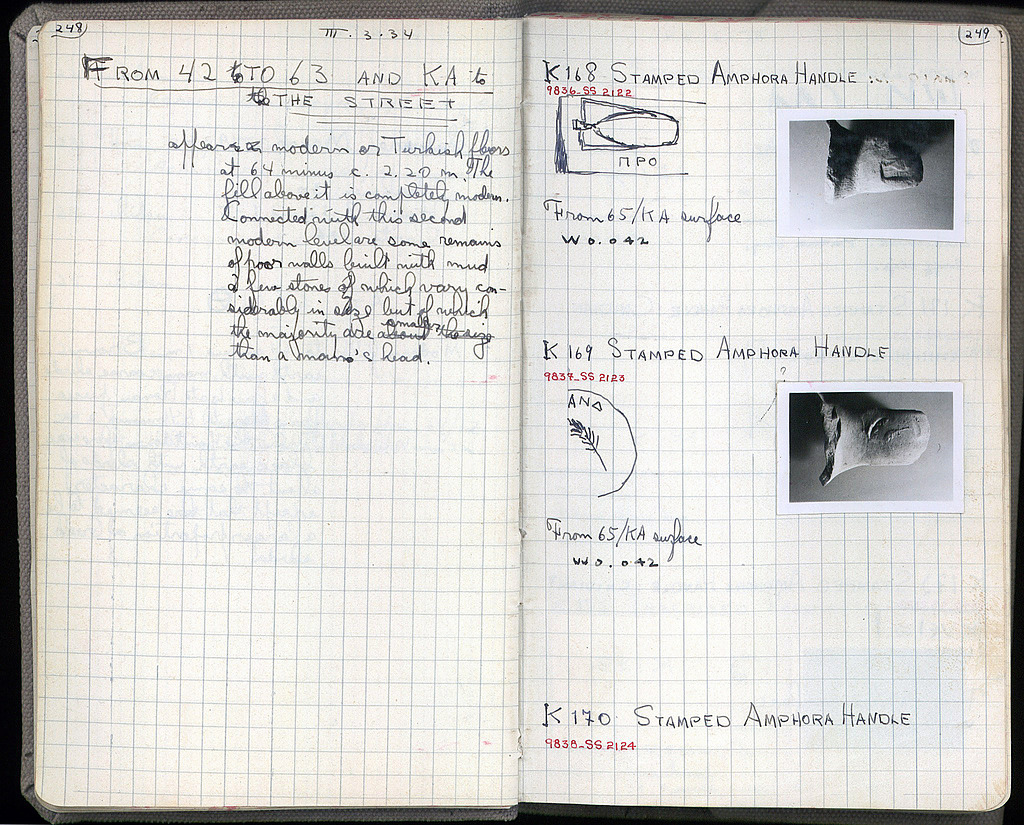 248
III. 3. 34
FROM 42 TO 63 AND KA to
THE STREET
appears a modern or Turkish floors
at 64 minus c. 2.20 m. The
fill above it is completely modern.
Connected with this second
modern level are some remains
of poor walls built with mud
& few stones of which vary con-
siderably in size but of which
the majority are about smaller the size
than a man's head.
249
K 168 STAMPED AMPHORA HANDLE
9836-SS 2122
ΠΡΟ
From 65/KA surface
W 0.042
K 169 STAMPED AMPHORA HANDLE
9837-SS 2123
?
ΑΝΔ
From 65/KA surface
W 0.042
K 170 STAMPED AMPHORA HANDLE
9838-SS 2124